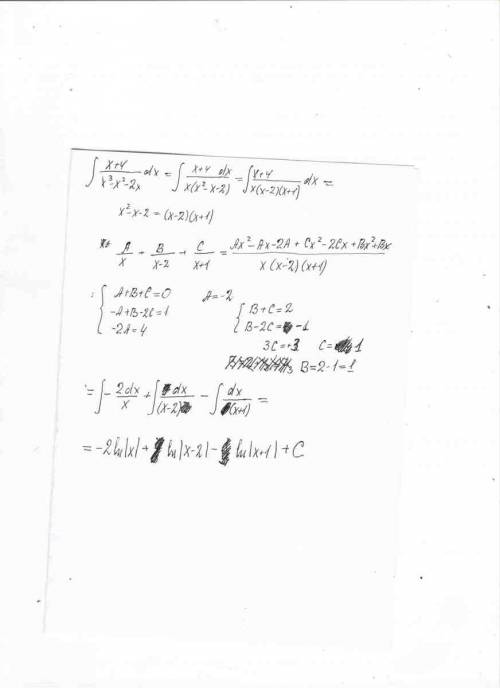 ∫ x+4 / x³-x²-2x dx = ∫ x+4 dx / x(x²-x-2) = ∫ x+4 / x(x-2)(x+1) dx =
x²-x-2 = (x-2)(x+1)
A/x + B/x-2 + C/x+1 = Ax²-Ax-2A+Cx²-2Cx+Bx²+Bx / x(x-2)(x+1)
{ A+B+C=0 A=-2 { B+C=2
-A+B-2C=1 B-2C=-1
-2A=4 3C=+3 C=1
B=2-1=1
= ∫ - 2dx/x + ∫ dx/(x-2) - ∫ dx/(x+1) =
= -2 ln|x| + ln|x-2| - ln|x+1| + C